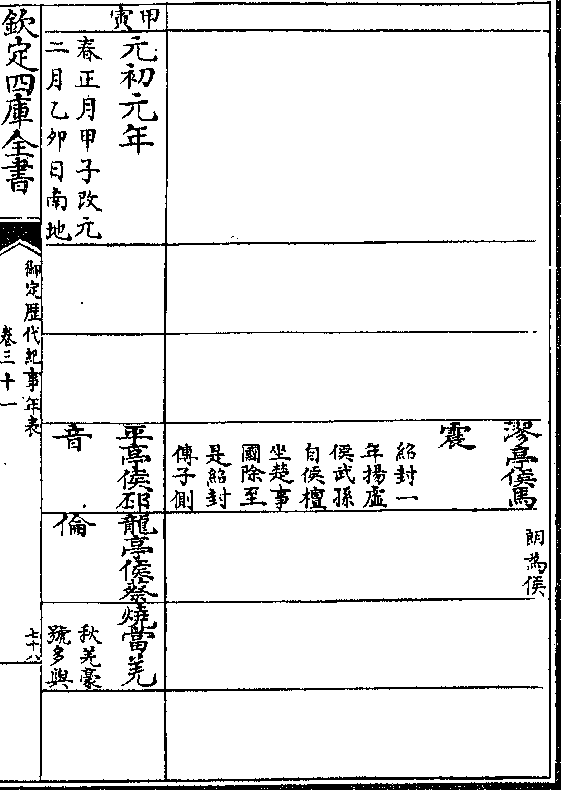 漻亭侯馬
震
紹封一
年揚虛
侯武孫
自侯檀
坐楚事
國除至
是紹封
傳子側
朗為侯
甲寅
元初元年
春正月甲子改元
二月乙卯日南地
平亭侯邳
音
龍亭侯蔡
倫
燒當羌
秋羌豪
號多與
欽定四庫全書
御定歴代紀事年表
卷三十一
七十八